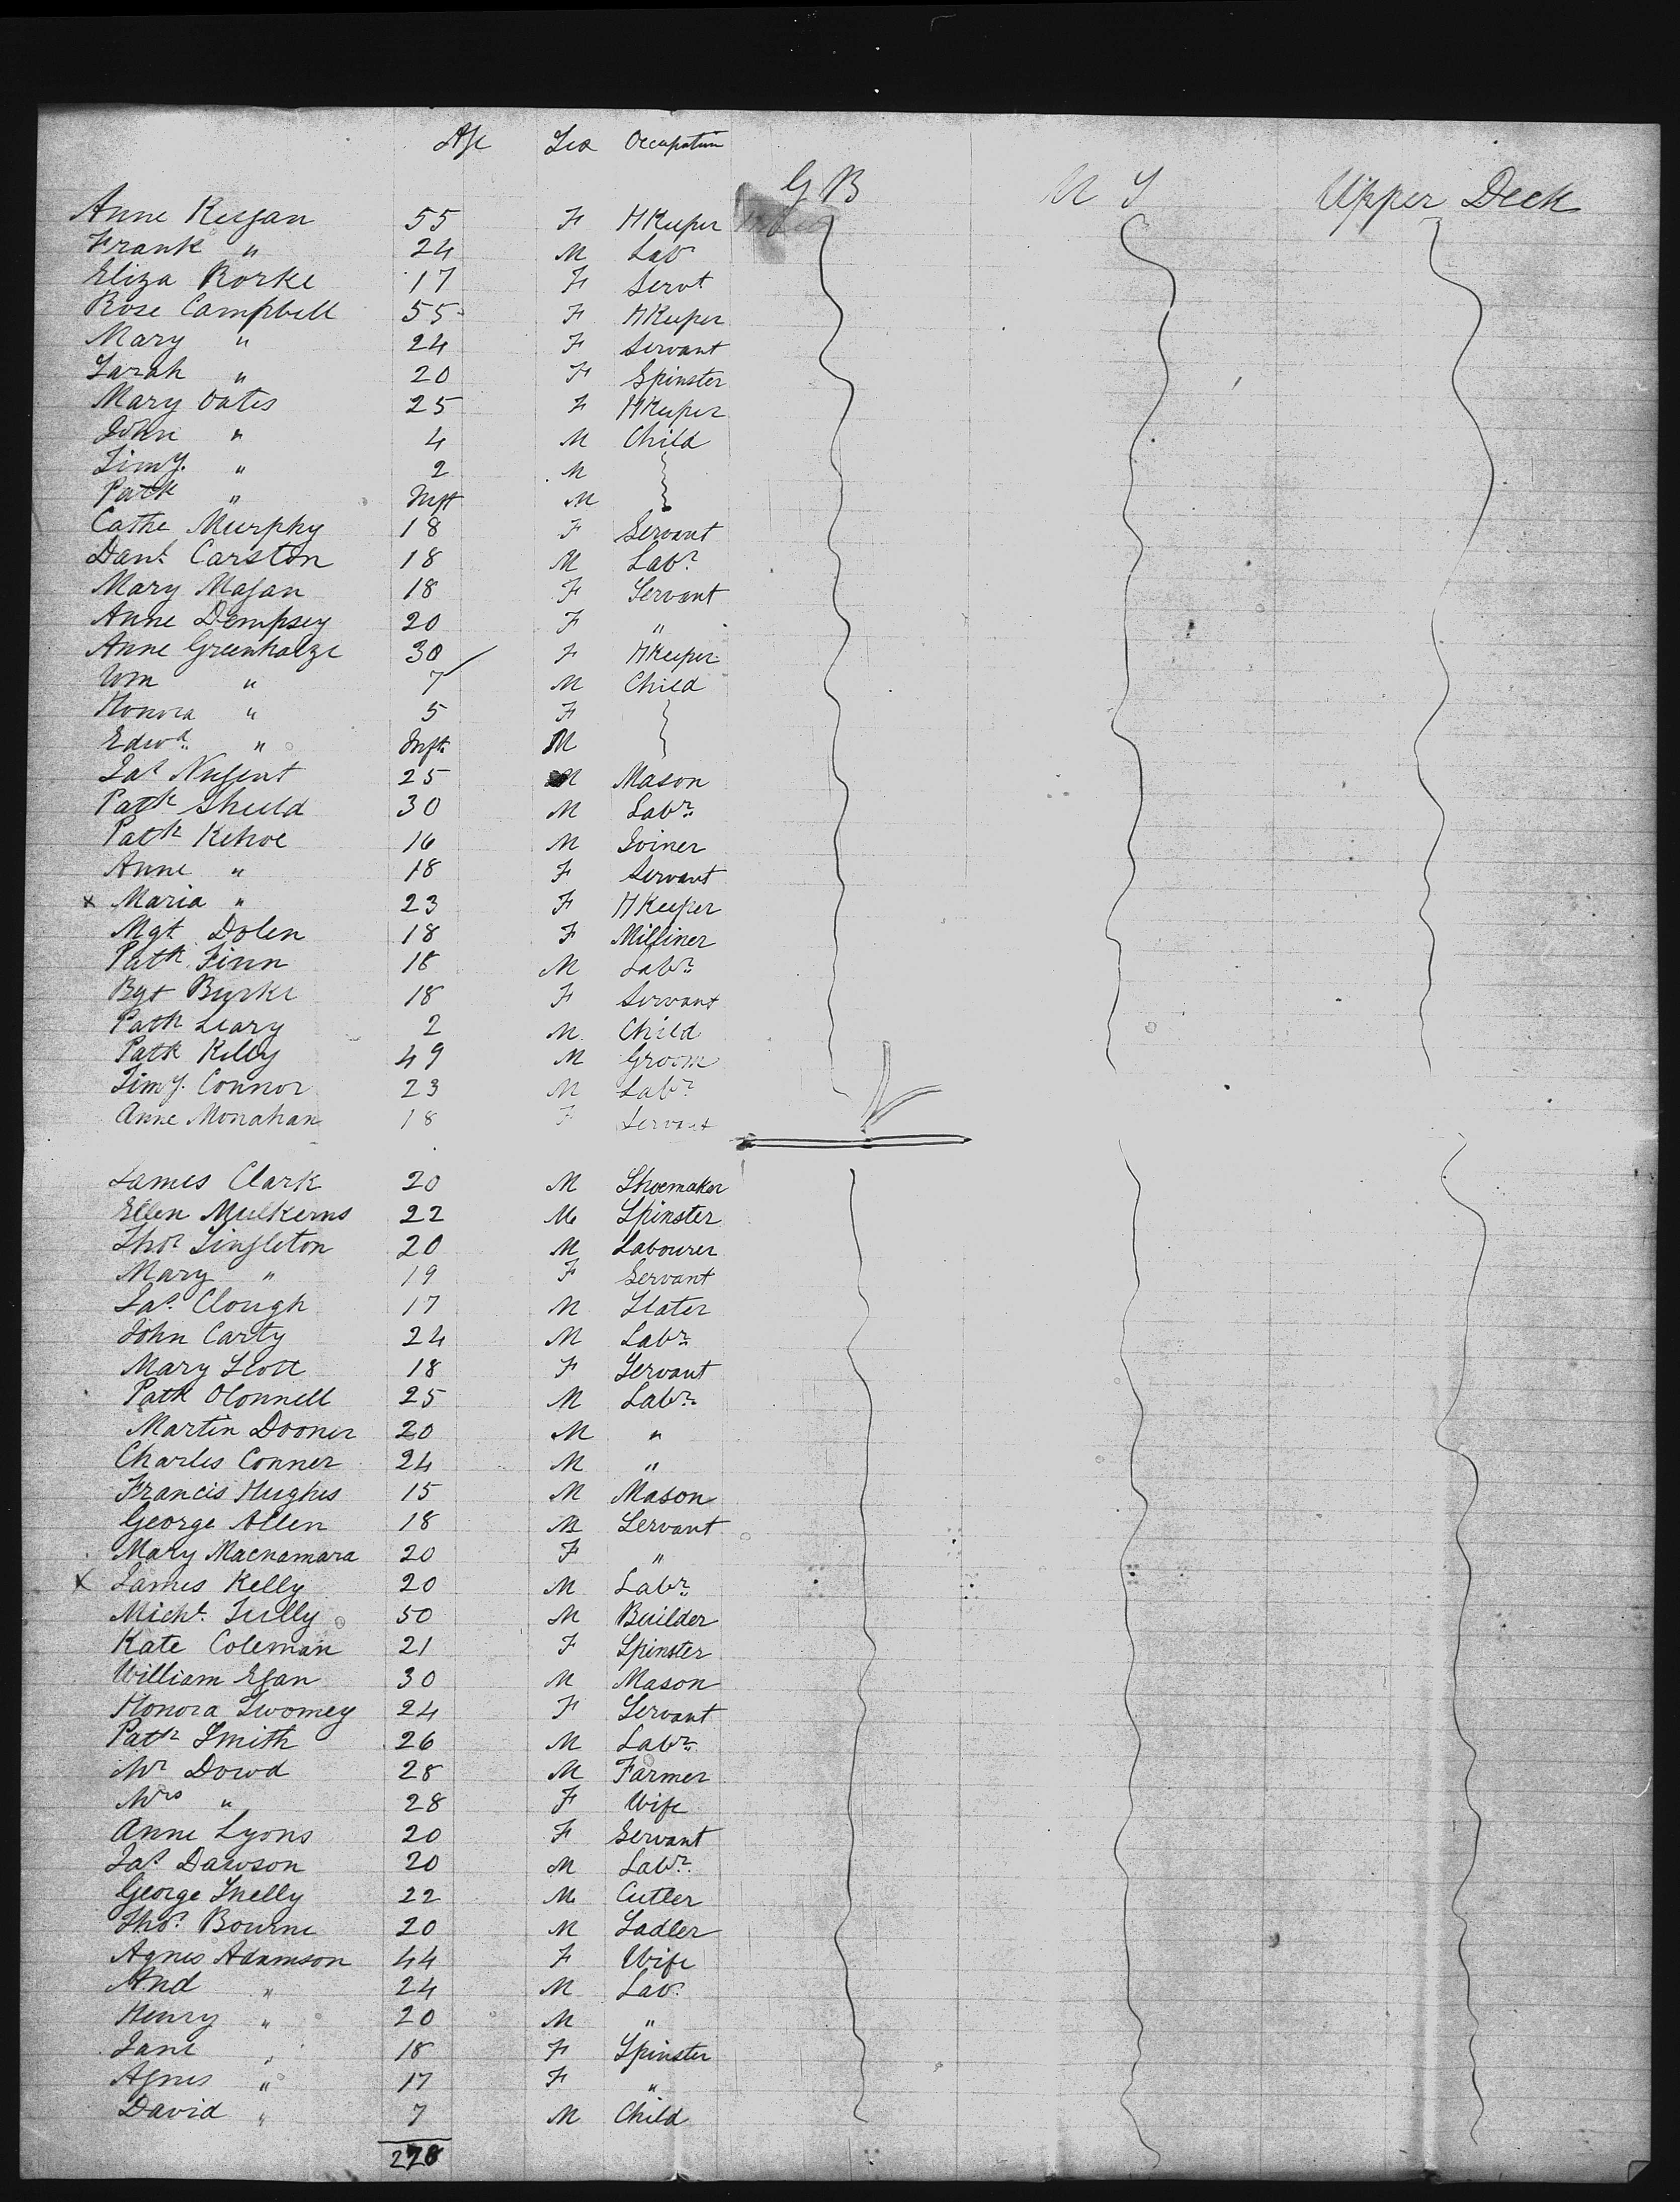 Age Sex Occupation
G B N Y Upper Deck
Anne Keegan 55 F HKeeper
Frank " 24 M Labr
Eliza Rorke 17 F Servt
Rose Campbell 55 F HKeeper
Mary " 24 F Servant
Sarah " 20 F Spinster
Mary Oates 25 F HKeeper
John " 4 M Child
Timy. " 2 M
Patk " Inft M
Cathe Murphy 18 F Servant
Danl. Carston 18 M Labr.
Mary Magan 18 F Servant
Anne Dempsey 20 F "
Anne Greenhalge 30 F HKeeper
Wm " 7 M Child
Honora " 5 F
Edwd. " Inft. M
Jas. Nugent 25 M Mason
Patk Sheild 30 M Labr.
Patk Kehoe 16 M Joiner
Anne " 18 F Servant
x Maria " 23 F HKeeper
Mgt Dolen 18 F Milliner
Patk Finn 18 M Labr.
Bgt Burke 18 F Servant
Patk Leary 2 M Child
Patk Kelly 49 M Groom
Timy. Connor 23 M Labr.
Anne Monahan 18 F Servant
James Clark 20 M Shoemaker
Ellen Mulkerns 22 M Spinster
Thos. Singleton 20 M Labourer
Mary " 19 F Servant
Jas. Clough 17 M Slater
John Carty 24 M Labr.
Mary Scott 18 F Servant
Patk OConnell 25 M Labr.
Martin Dooner 20 M "
Charles Conner 24 M "
Francis Hughes 15 M Mason
George Allen 18 M Servant
Mary Macnamara 20 F "
x James Kelly 20 M Labr.
Michl. Tully 50 M Builder
Kate Coleman 21 F Spinster
William Egan 30 M Mason
Honora Twomey 24 F Servant
Patk Smith 26 M Labr.
Mr Dowd 28 M Farmer
Mrs " 28 F Wife
Anne Lyons 20 F Servant
Jas. Dawson 20 M Labr.
George Snelly 22 M Cutler
Thos. Bourne 20 M Sadler
Agnes Adamson 44 F Wife
And " 24 M Labr.
Henry " 20 M "
Jane " 18 F Spinster
Agnes " 17 F "
David " 7 M Child